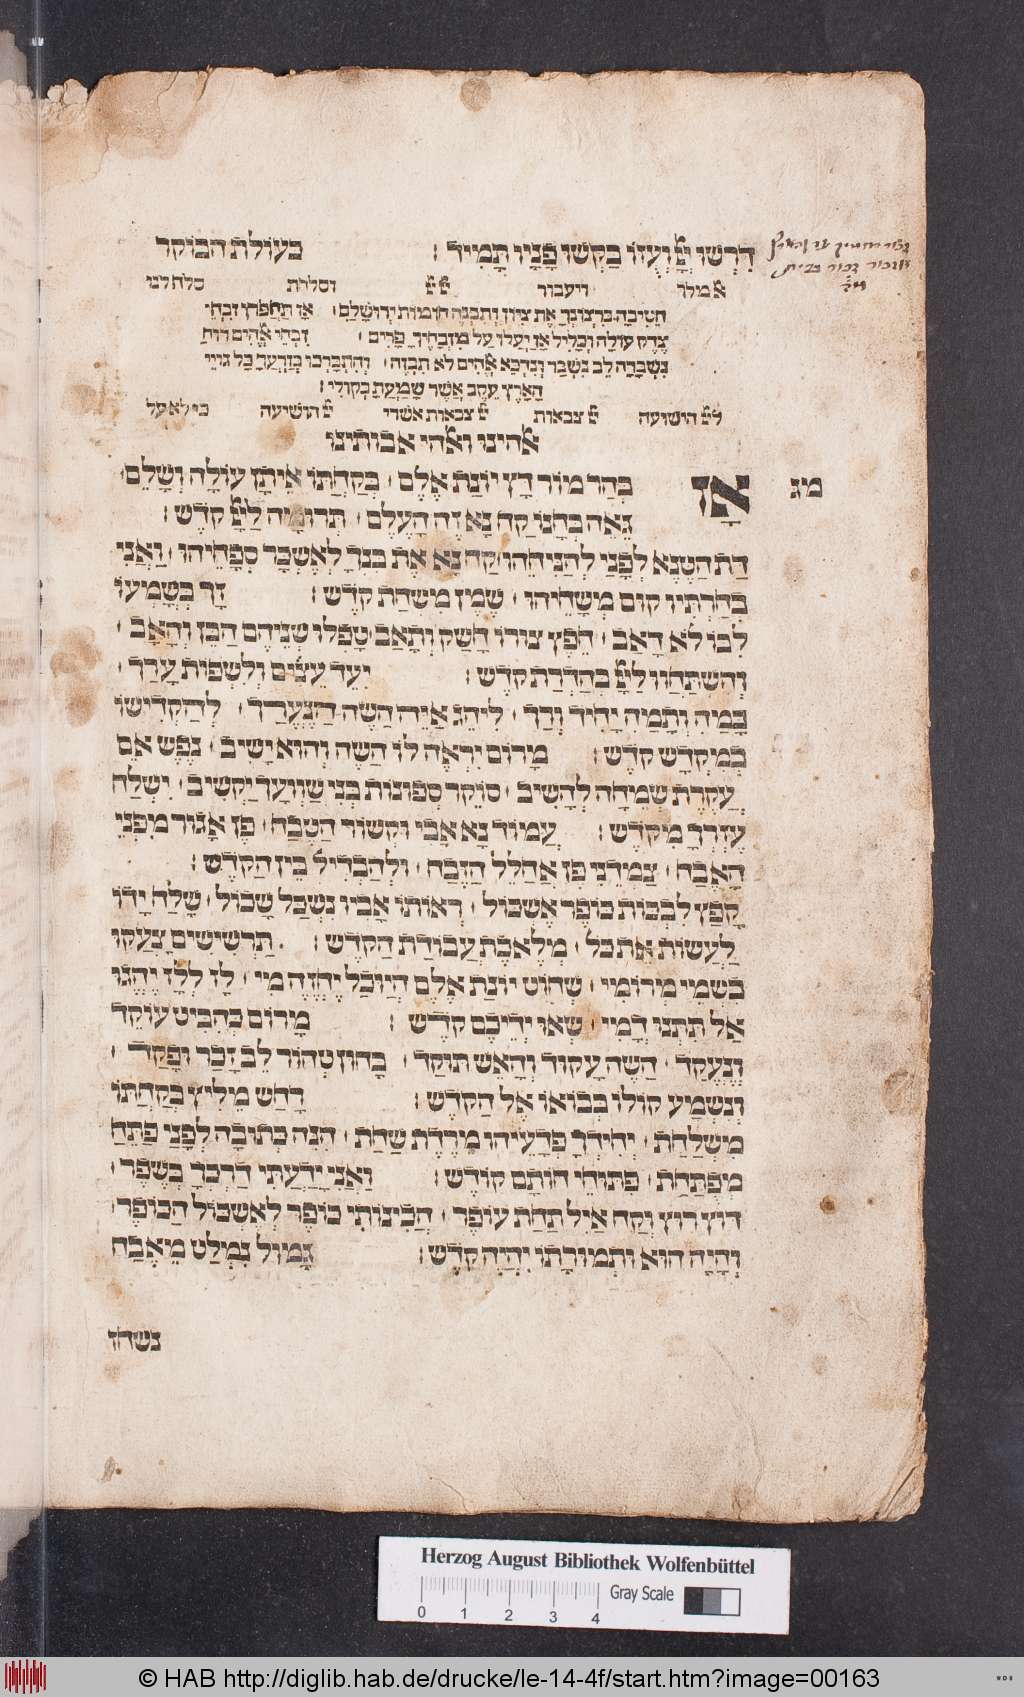 דִרְשׁוּ יְיָ וְעֻזּוֹ בַּקְּשׁוּ פָנָיו תָּמִיד : כעולת הבוקר
אל מלך ויעבור וסלחת סלח לנו
הֵטִיבָה בִרְצוֹנְךָ אֶת צִיּוֹן וְתִבְנֶה חוֹמוֹת יְרוּשָׁלִָם : אָז תַּחְפֹּץ זִבְחֵי
צֶדֶק עוֹלָה וְכָלִיל אָז יַעֲלוּ עַל מִזְבַּחֲךָ פָּרִים : זִבְחֵי אלהים רוּחַ
נִשְׁבָּרָה לֵב נִשְׁבָּר וְנִדְכֶּא אלהים לֹא תִבְזֶה : וְהִתְבָּרְכוּ בְזַרְעֲךָ כָּל גּוֹיֵי
הָאָרֶץ עֵקֶב אֲשֶׁר שָׁמַעְתָּ בְּקוֹלִי :
ליי הישועה יי צבאות יי צבאות אשרי יי הושיעה כי לא על
אלהינו ואלהי אבותינו
מג אָז בְּהַר מוֹר דָּץ יוֹנַת אֵלֶם · בְּקַחְתּוֹ אֵיתָן עוֹלָה וְשָׁלֵם ·
גֵּאֶה בְּחָנוֹ קַח נָא זֶה הָעֶלֶם · תְּרוּמָה לַייָ קֹדֶשׁ :
דַּת הַטֶּנֶא לְפָנַי לְהַנִּיחֵהוּ קַח נָא אֶת בִּנְךָ לְאֶשְׁכָּר סְפָחֵיהוּ · וַאֲנִי
בְּחַרְתִּיו קוּם מְשָׁחֵיהוּ · שֶׁמֶן מִשְׁחַת קֹדֶשׁ : זָךְ בְּשָׁמְעוֹ
לִבּוֹ לֹא דָאָב · חֵפֶץ צוּרוֹ חָשַׁק וְתָאַב טָפְלוּ שְׁנֵיהֶם הַבֵּן וְהָאָב ·
וְהִשְׁתַּחֲווּ לַייָ בְּהַדְרַת קֹדֶשׁ : יִעֵד עֵצִים וְלִשְׁפּוֹת עָרַךְ ·
בָּמָה וְתָמַהּ יָחִיד וָרַךְ · לִיהֵג אַיֵּה הַשֶּׂה הַנֶּעֱרַךְ · לְהַקְדִּישׁוֹ
בְּמִקְדַּשׁ קֹדֶשׁ : מָרוֹם יִרְאֶה לּוֹ הַשֶּׂה וְהוּא יָשִׁיב · נֶפֶשׁ אֵם
עֲקֶרֶת שִׂמְחָה לְהָשִׁיב · סוֹקֵר סְפוּנוֹת בְּנִי שַׁוְועַךְ יַקְשִׁיב · יִשְׁלַח
עֶזְרְךָ מִקֹּדֶשׁ : עֲמוֹד נָא אָבִי וּקְשׁוֹר הַטֶּבַח · פֶּן אָגוּר מִפְּנֵי
הָאִבְחָ · צַמְּדֵנִי פֶּן אֲחַלֵּל הַזֶּבַח · וּלְהַבְדִּיל בֵּין הַקֹּדֶשׁ :
קָפַץ לִכְבּוֹת כּוֹפֶר אֶשְׁכּוֹל · רְאוֹתוֹ אָבִיו נִשְׁכַּל שָׁכוֹל · שָׁלַח יָדוֹ
לַעֲשׂוֹת אֶת כֹּל · מְלֶאכֶת עֲבוֹדַת הַקֹּדֶשׁ : תַּרְשִׁישִׁים צָעֲקוּ
בִּשְׁמֵי מְרוֹמַי · שְׁחוֹט יוֹנַת אֵלֶם הֲיוּכַל יֶחֱזֶה מִי · לָן לְלָן יֶהְגּוּ
אַל תִּתְּנוּ דֳמִי · שְׂאוּ יְדֵיכֶם קֹדֶשׁ : מָרוֹם בְּהַבִּיט עוֹקֵד
וְנֶעֱקָד · הַשֶּׂה עָקוּד וְהָאֵשׁ תּוּקַד · בָּחוּן טְהוֹר לֵב זָכַר וּפָקַד ·
וְנִשְׁמַע קוֹלוֹ בְּבוֹאוֹ אֶל הַקֹּדֶשׁ : רָחַשׁ מֵלִיץ בְּקַחְתּוֹ
מִשְׁלַחַת · יְחִידְךָ פְּדָעֵיהוּ מֵרֶדֶת שַׁחַת · הִנֵּה כְתוּבָה לְפָנַי פֻּתַּחַ
מְפֻתַּחַת · פִּתּוּחֵי חוֹתָם קוֹדֶשׁ : וַאֲנִי יָדַעְתִּי דַרְכְּךָ בְּשֶׁפֶר ·
רוּץ רוּץ וְקַח אַיִל תַּחַת עוֹפֶר · הֲכִינוֹתִי כּוֹפֶר לְאֶשְׁכּוֹל הַכּוֹפֶר ·
וְהָיָה הוּא וּתְמוּרָתוֹ יִהְיֶה קֹדֶשׁ : גָּמוּל נִמְלַט מֵאִבְחַ
Herzog August Bibliothek Wolfenbüttel
0 1 2 3 4 Gray Scale
© HAB http://diglib.hab.de/drucke/le-14-4f/start.htm?image=00163